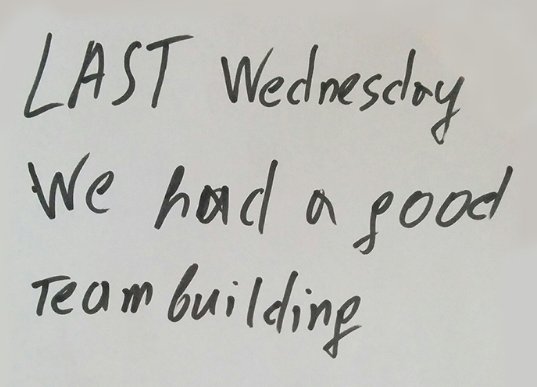 LAST Wednesday
We had a good
Teambuilding